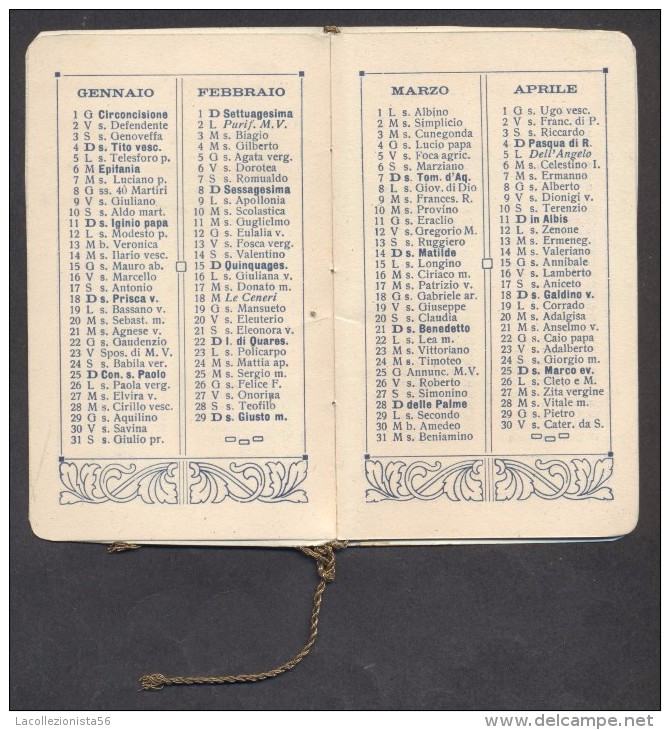 GENNAIO
1 G Circoncisione
2 V s. Defendente
3 S s. Genoveffa
4 D s. Tito vesc.
5 L s. Telesforo p.
6 M Epifania
7 M s. Luciano p.
8 G ss. 40 Martiri
9 V s. Giuliano
10 S s. Aldo mart.
11 D s. Iginio papa
12 L s. Modesto p.
13 M b. Veronica
14 M s. Ilario vesc.
15 G s. Mauro ab.
16 V s. Marcello
17 S s. Antonio
18 D s. Prisca v.
19 L s. Bassano v.
20 M s. Sebast. m.
21 M s. Agnese v.
22 G s. Gaudenzio
23 V Spos. di M. V.
24 S s. Babila ver.
25 D Con. s. Paolo
26 L s. Paola verg.
27 M s. Elvira v.
28 M s. Cirillo vesc.
29 G s. Aquilino
30 V s. Savina
31 S s. Giulio pr.
FEBBRAIO
1 D Settuagesima
2 L Purif. M. V.
3 M s. Biagio
4 M s. Gilberto
5 G s. Agata verg.
6 V s. Dorotea
7 S s. Romualdo
8 D Sessagesima
9 L s. Apollonia
10 M s. Scolastica
11 M s. Guglielmo
12 G s. Eulalia v.
13 V s. Fosca verg.
14 S s. Valentino
15 D Quinquages.
16 L s. Giuliana v.
17 M s. Donato m.
18 M Le Ceneri
19 G s. Mansueto
20 V s. Eleuterio
21 S s. Eleonora v.
22 D I. di Quares.
23 L s. Policarpo
24 M s. Mattia ap.
25 M s. Sergio m.
26 G s. Felice F.
27 V s. Onorina
28 S s. Teofilo
29 D s. Giusto m.
MARZO
1 L s. Albino
2 M s. Simplicio
3 M s. Cunegonda
4 G s. Lucio papa
5 V s. Foca agric.
6 S s. Marziano
7 D s. Tom. d'Aq.
8 L s. Giov. di Dio
9 M s. Frances. R.
10 M s. Provino
11 G s. Eraclio
12 V s. Gregorio M.
13 S s. Ruggiero
14 D s. Matilde
15 L s. Longino
16 M s. Ciriaco m.
17 M s. Patrizio v.
18 G s. Gabriele ar.
19 V s. Giuseppe
20 S s. Claudia
21 D s. Benedetto
22 L s. Lea m.
23 M s. Vittoriano
24 M s. Timoteo
25 G Annunc. M. V.
26 V s. Roberto
27 S s. Simonino
28 D delle Palme
29 L s. Secondo
30 M b. Amedeo
31 M s. Beniamino
APRILE
1 G s. Ugo vesc.
2 V s. Franc. di P.
3 S s. Riccardo
4 D Pasqua di R.
5 L Dell'Angelo
6 M s. Celestino I.
7 M s. Ermanno
8 G s. Alberto
9 V s. Dionigi v.
10 S s. Terenzio
11 D in Albis
12 L s. Zenone
13 M s. Ermeneg.
14 M s. Valeriano
15 G s. Annibale
16 V s. Lamberto
17 S s. Aniceto
18 D s. Galdino v.
19 L s. Corrado
20 M s. Adalgisa
21 M s. Anselmo v.
22 G s. Caio papa
23 V s. Adalberto
24 S s. Giorgio m.
25 D s. Marco ev.
26 L s. Cleto e M.
27 M s. Zita vergine
28 M s. Vitale m.
29 G s. Pietro
30 V s. Cater. da S.
Lacollezionista56
www.delcampe.net